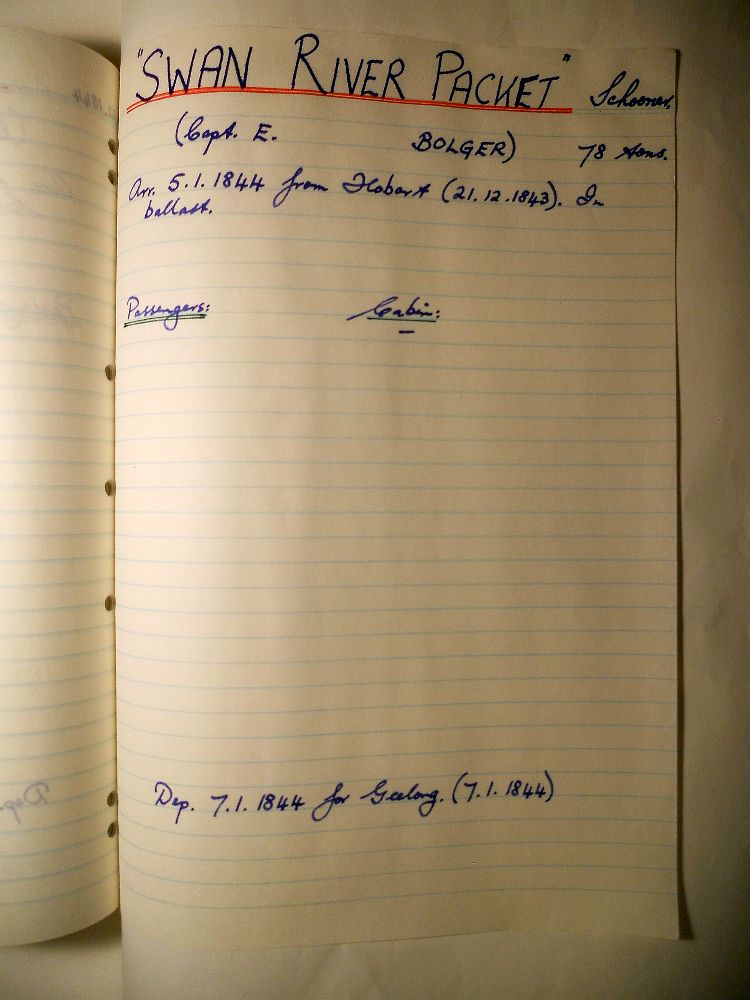 "SWAN RIVER PACKET" Schooner,
(Capt. E. BOLGER) 78 tons.
Arr. 5.1.1844 from Hobart (21.12.1843). In
ballast.
Passengers: Cabin:
—
Dep. 7.1.1844 for Geelong. (7.1.1844)